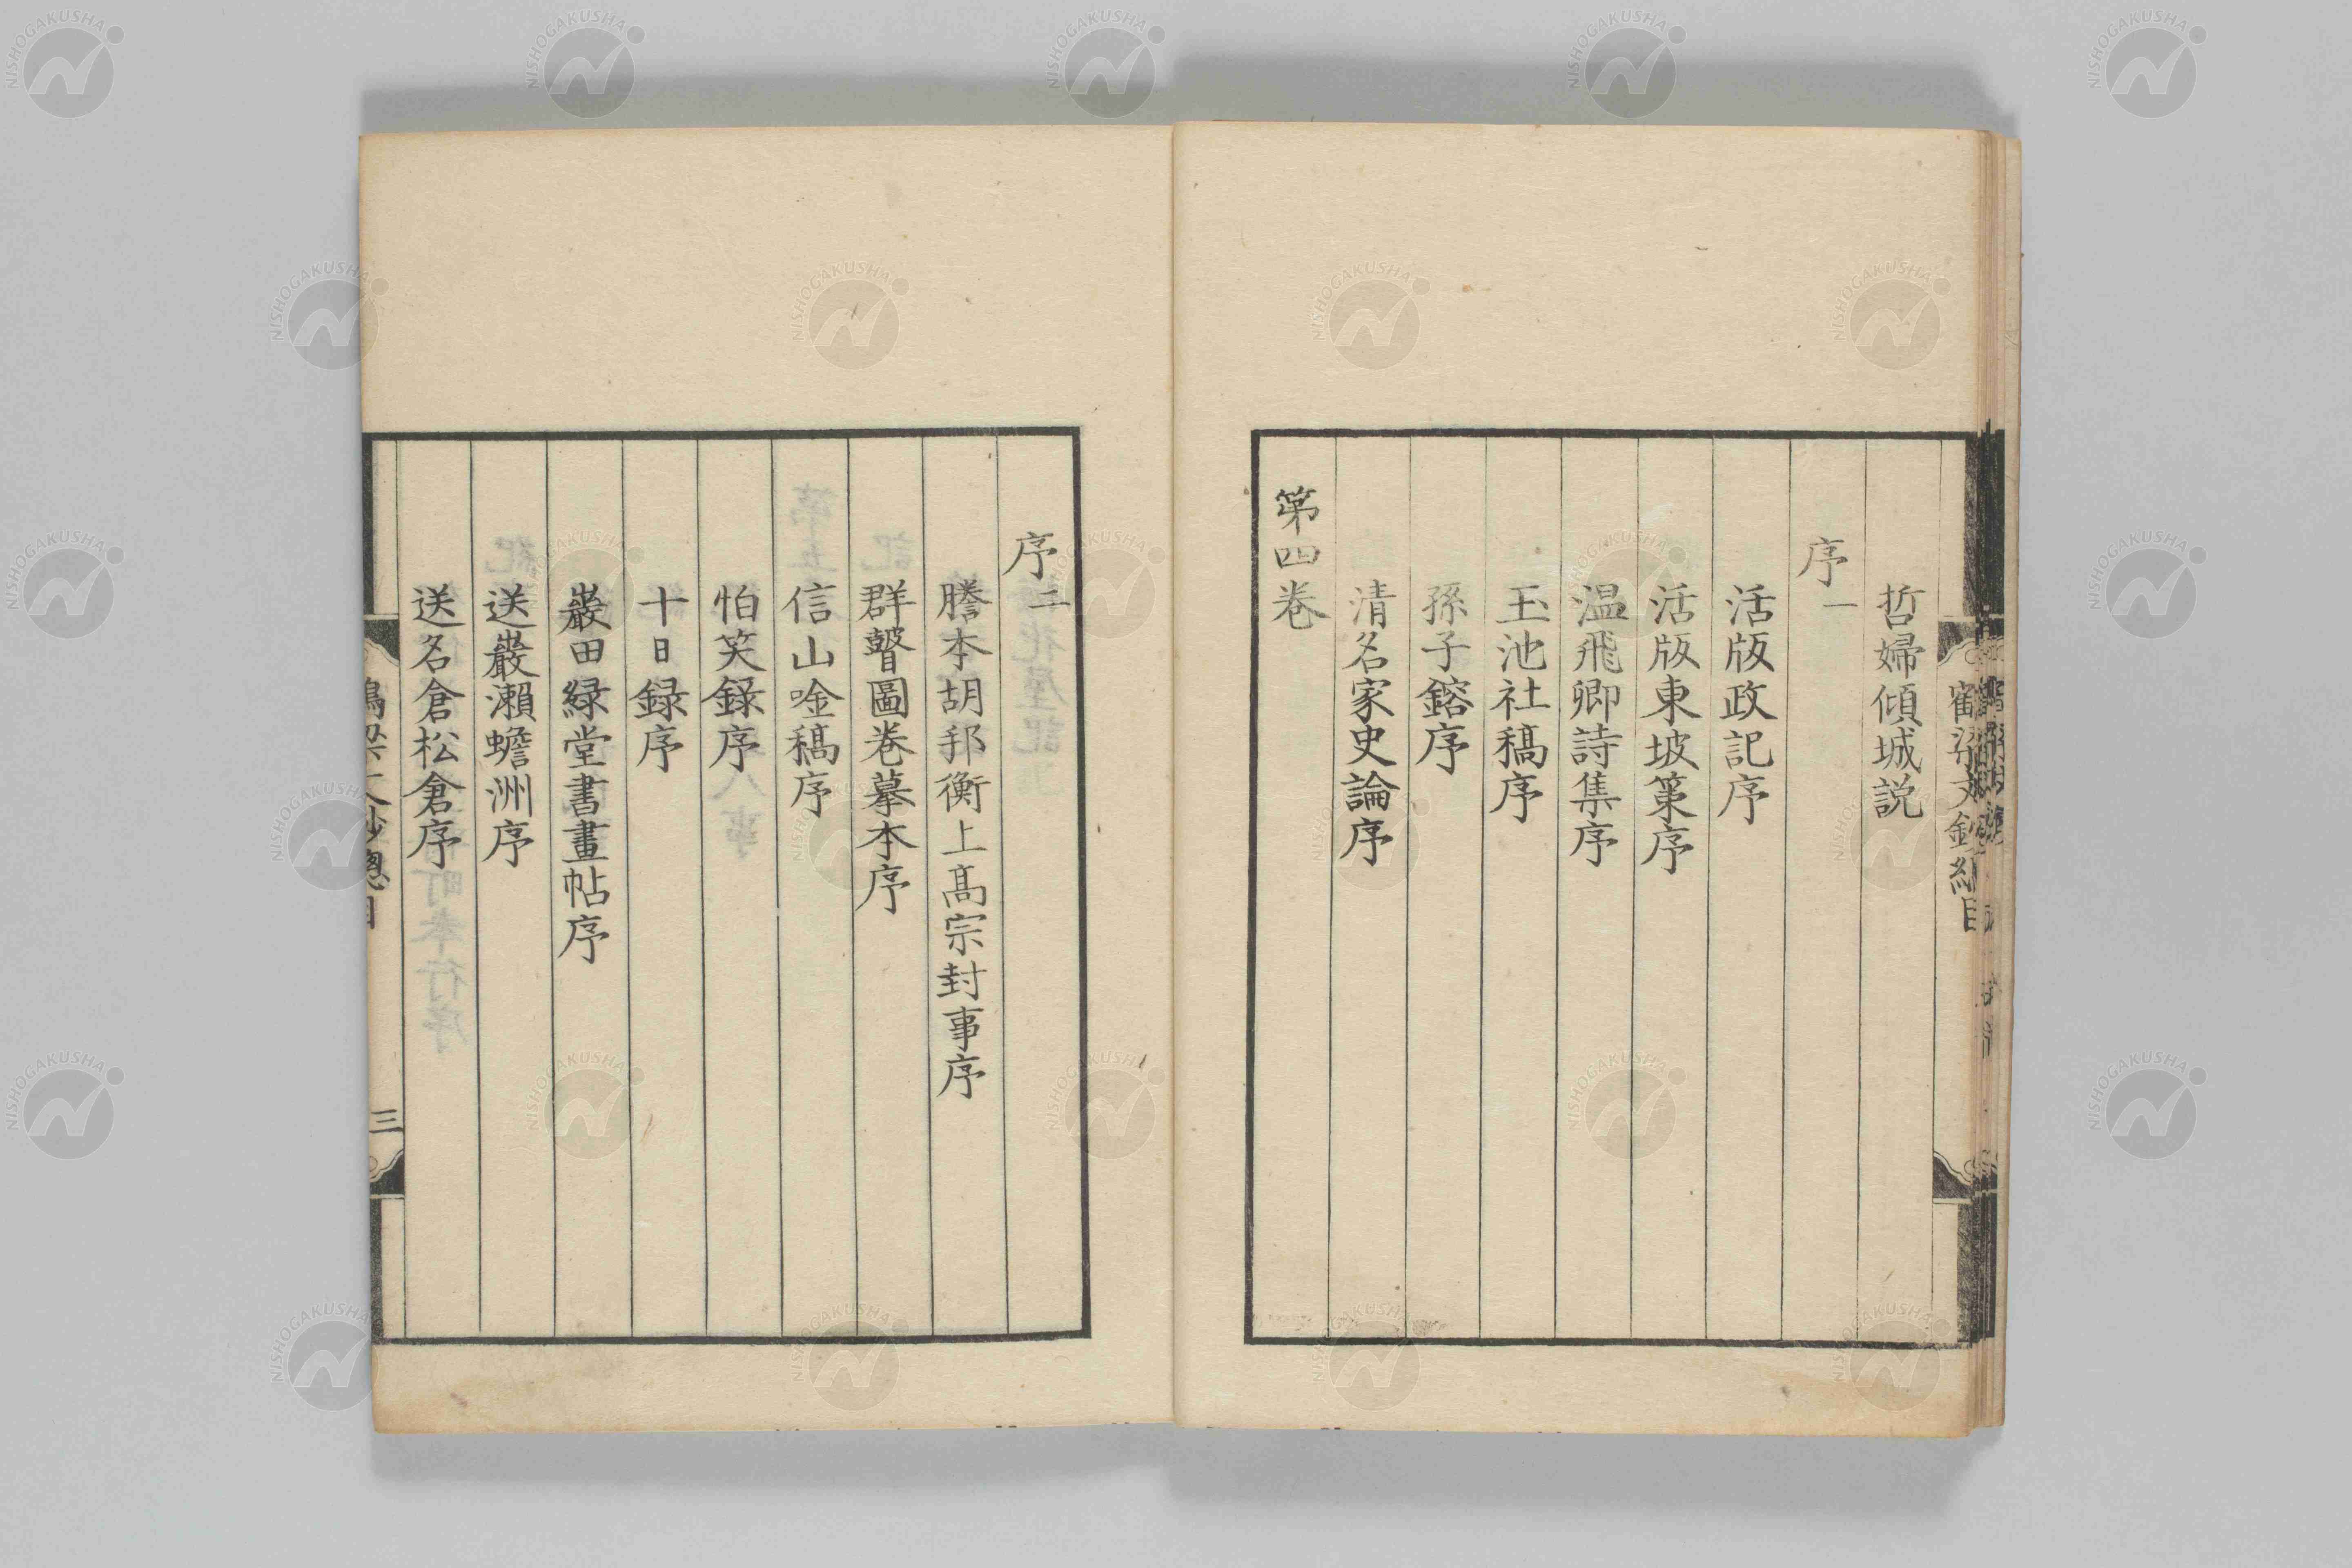 哲婦傾城説
序一
活版政記序
活版東坡策序
温飛卿詩集序
玉池社稿序
孫子鎔序
清名家史論序
第四卷
序二
謄本胡邦衡上髙宗封事序
群瞽圖卷摹本序
信山唫稿序
怕笑録序
十日録序
巖田緑堂書畫帖序
送巖瀬蟾洲序
送名倉松倉序
三
NISHOGAKUSHA